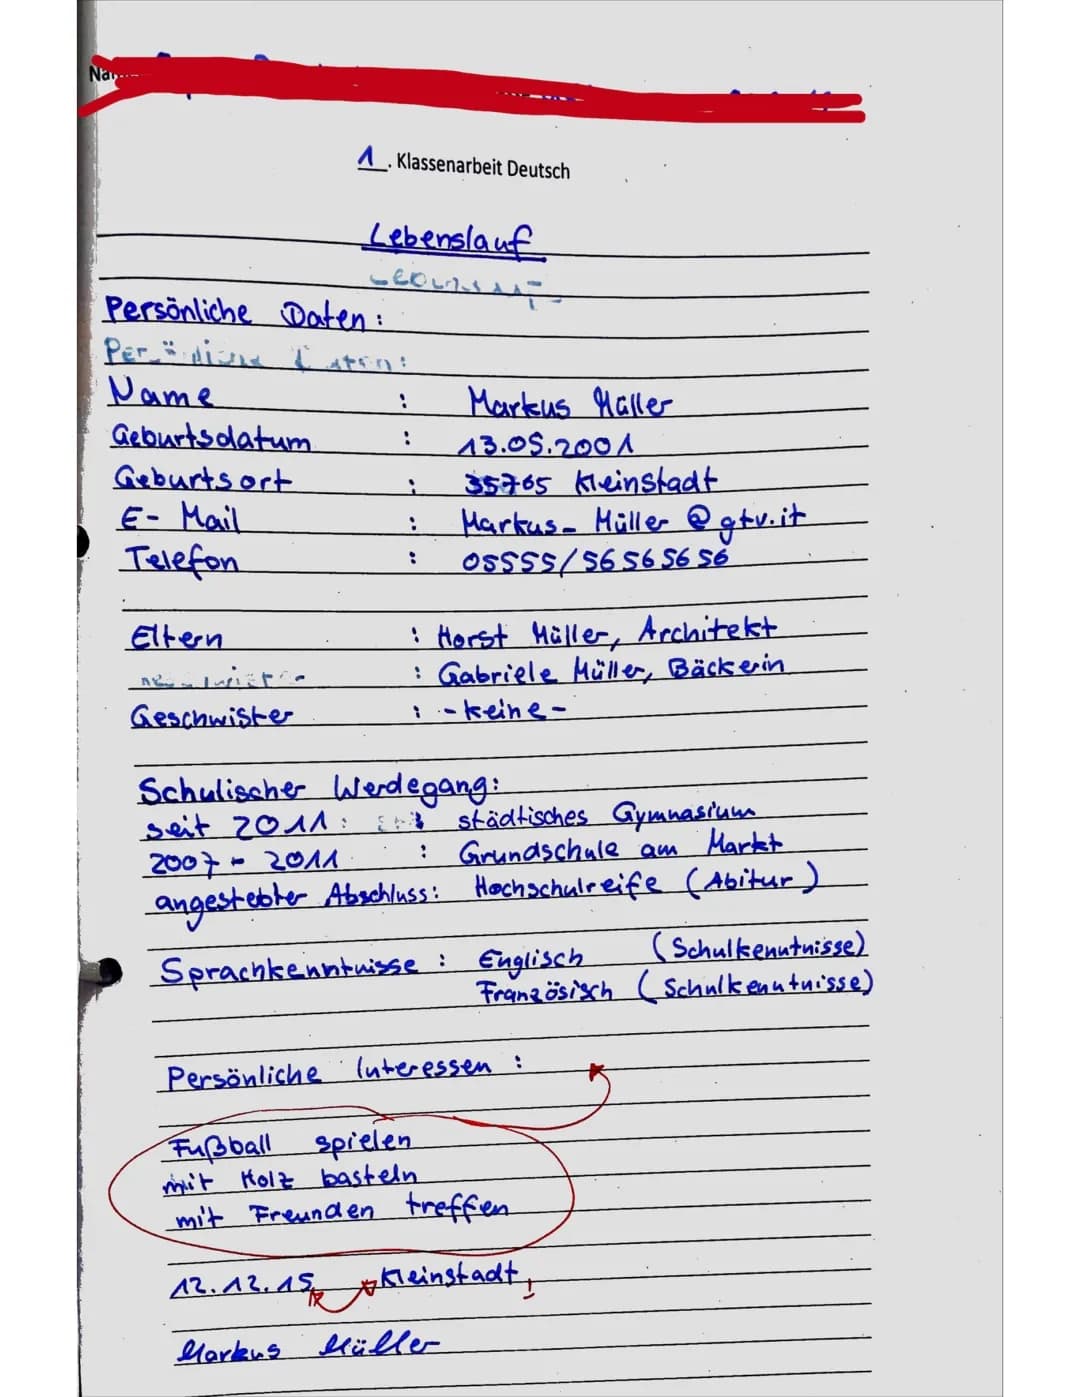 1. Klassenarbeit Deutsch
Lebenslauf
Persönliche Daten:
Name : Markus Müller
Geburtsdatum : 13.05.2001
Geburtsort : 35765 Kleinstadt
E-Mail : Markus-Müller@gtv.it
Telefon : 05555/56565656
Eltern : Horst Müller, Architekt
: Gabriele Müller, Bäckerin
Geschwister : -keine-
Schulischer Werdegang:
seit 2011: städtisches Gymnasium
2007-2011 : Grundschule am Markt
angestebter Abschluss: Hochschulreife (Abitur)
Sprachkenntnisse : Englisch (Schulkenntnisse)
Französisch (Schulkenntnisse)
Persönliche Interessen :
Fußball spielen
mit Holz basteln
mit Freunden treffen
12.12.15, Kleinstadt !
Markus Müller